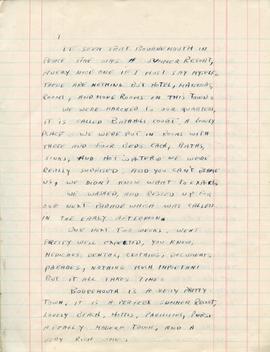 1
WE SEEN THAT BOURNEMOUTH IN
PEACE TIME WAS A SUMMER RESORT,
A VERY NICE ONE IF I MUST SAY MYSELF.
THERE ARE NOTHING BUT HOTEL, MARRING
ROOMS, AND MORE ROOMS IN THIS TOWN.
WE WERE MARCHED TO OUR QUARTERS,
IT IS CALLED COURT, A LOVELY
PLACE. WE WERE PUT IN ROOMS WITH
THREE AND FOUR BEDS EACH, BATHS,
SINKS, AND HOT WATER WE WERE
REALLY SURPRISED. AND YOU CAN'T BLAME
US, WE DIDN'T KNOW WHAT TO EXPECT.
WE WASHED, AND RESTED UP FOR
OUR NEXT PARADE WHICH WAS CALLED
IN THE EARLY AFTERNOON.
OUR NEXT TWO WEEKS WENT
PRETTY WELL EXPECTED, YOU KNOW,
MEDICALS, DENTAL, CLOTHING, DOCUMENTS,
PARADES, NOTHING MUCH IMPORTANT
BUT IT ALL TAKES TIME.
BOURNEMOUTH IS A VERY PRETTY
TOWN, IT IS A PERFECT SUMMER RESORT,
LOVELY BEACH, HOTELS, PAVILIONS,
A REALLY MODERN TOWN, AND A
VERY RICH ONE.